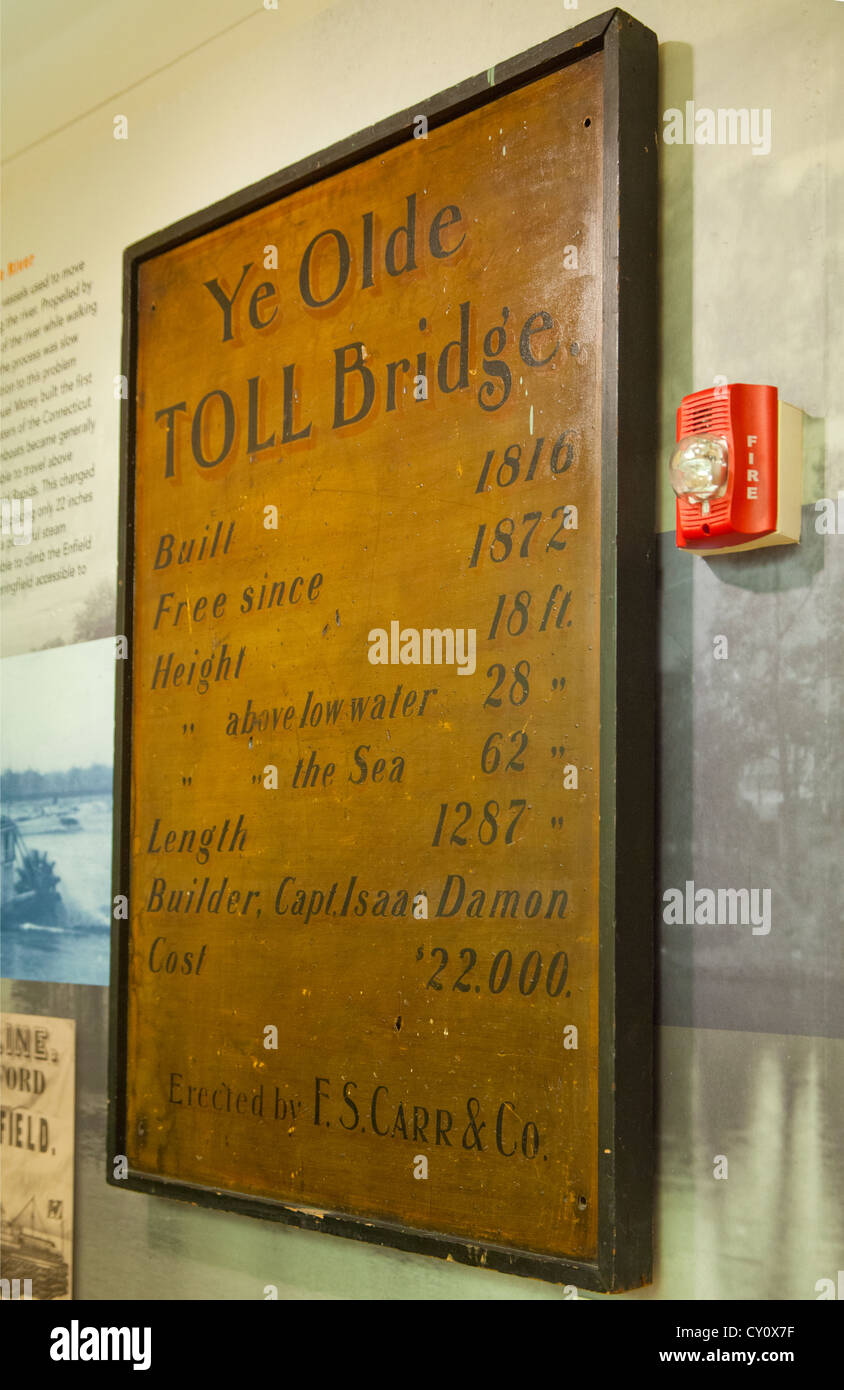 Ye Olde
TOLL Bridge.
Built 1816
Free since 1872
Height 18 ft.
„ above low water 28 „
„ „ the Sea 62 „
Length 1287 „
Builder, Capt. Isaac Damon
Cost $22.000.
Erected by F. S. CARR & Co.
FIRE
River
vessels used to move
the river. Propelled by
of the river while walking
the process was slow
to this problem
Morey built the first
of the Connecticut
became generally
to travel above
Rapids. This changed
only 22 inches
steam
to climb the Enfield
accessible to
INE.
FORD
FIELD.
alamy
Image ID: CY0X7F
www.alamy.com